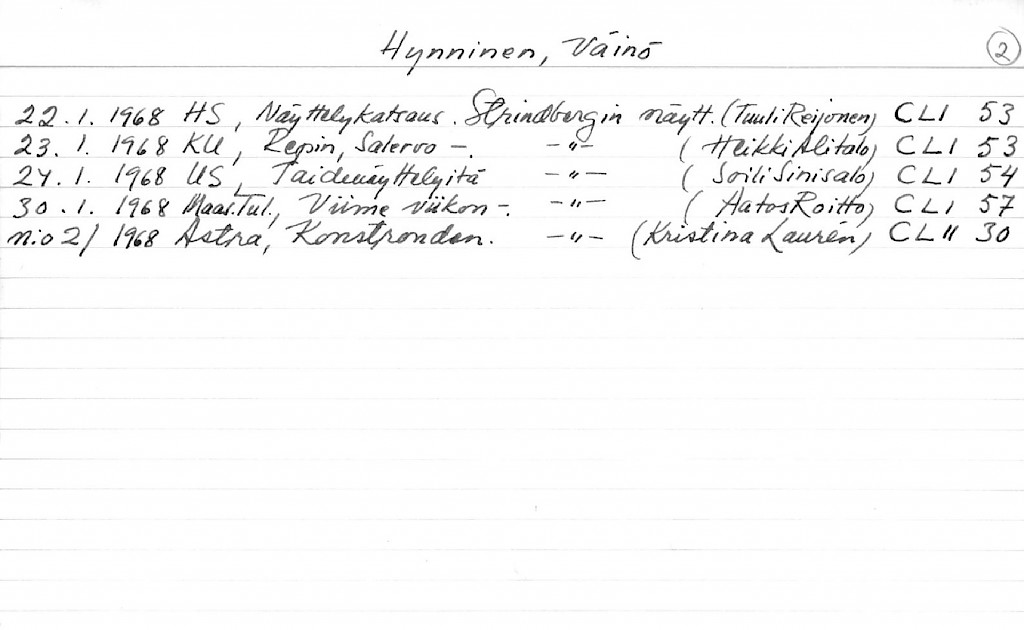 Hynninen, Väinö 2
22.1.1968 HS, Näyttelykatsaus. Strindbergin näytt. (Tuuli Reijonen) CLI 53
23.1.1968 KU, Repin, Salervo -. -"- (Heikki Alitalo) CLI 53
24.1.1968 US, Taidenäyttelyitä -"- (Soili Sinisalo) CLI 54
30.1.1968 Maas.Tul., Viime viikon -. -"- (Aatos Roitto) CLI 57
n:o 2/1968 Astra, Konstronden. -"- (Kristina Laurén) CLII 30